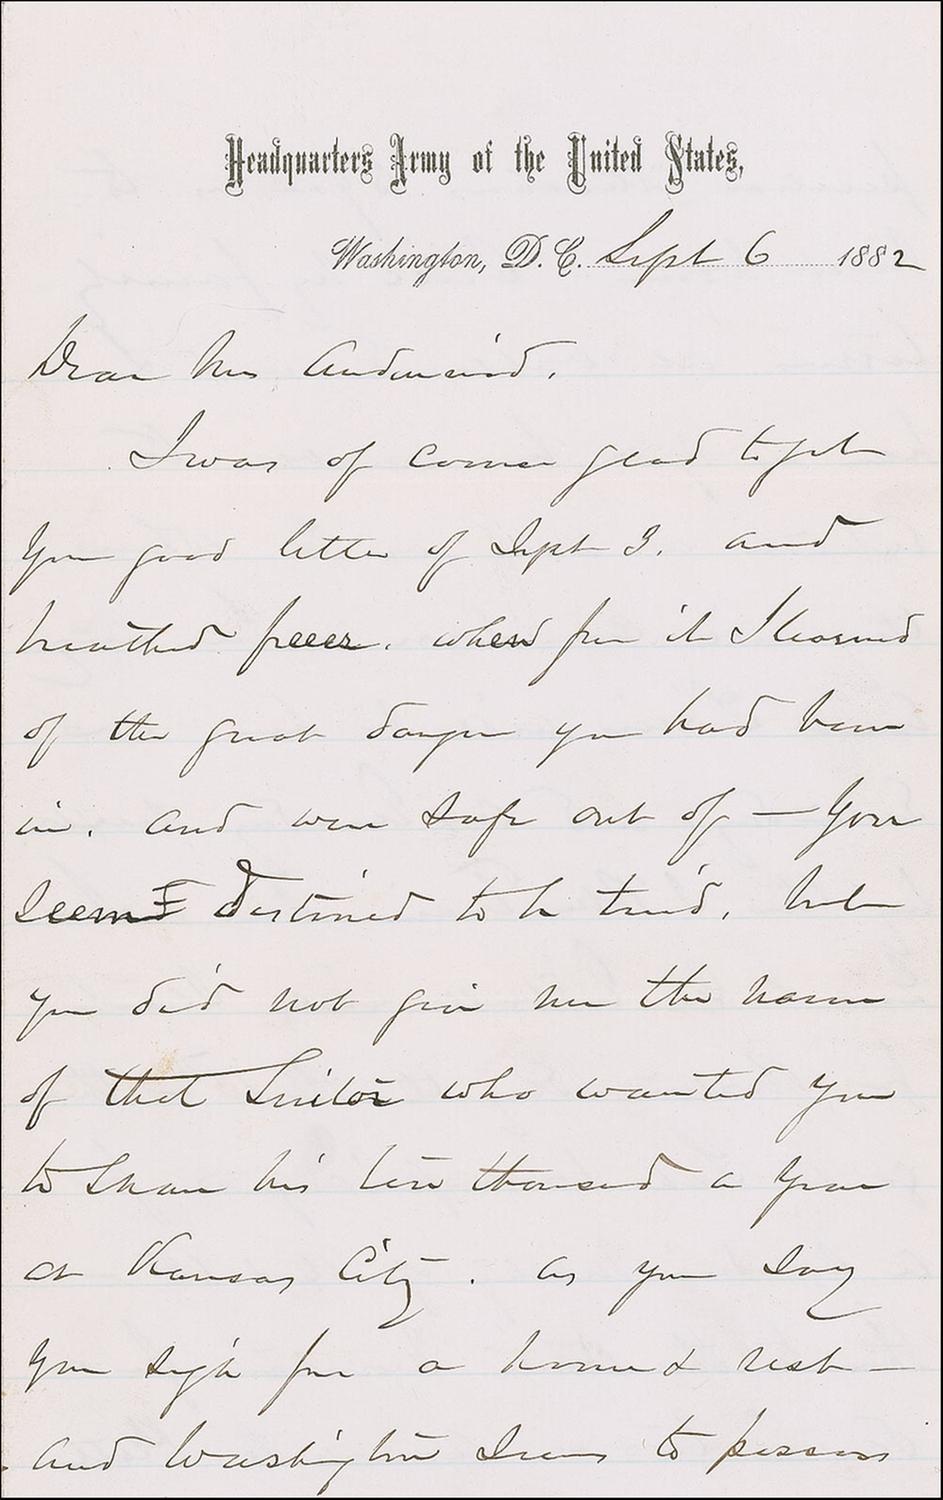 Headquarters Army of the United States,
Washington, D.C. Sept 6 1882
Dear Mrs Audenried.
I was of course glad to get
your good letter of Sept 3. and
breathed freeer. when from it I learned
of the great danger you had been
in. and were safe out of — You
seemd destined to be tried, but
you did not give me the name
of that Suitor who wanted you
to share his ten thousand a year
at Kansas City. As you say
you sigh for a home & rest —
and Washington seems to possess